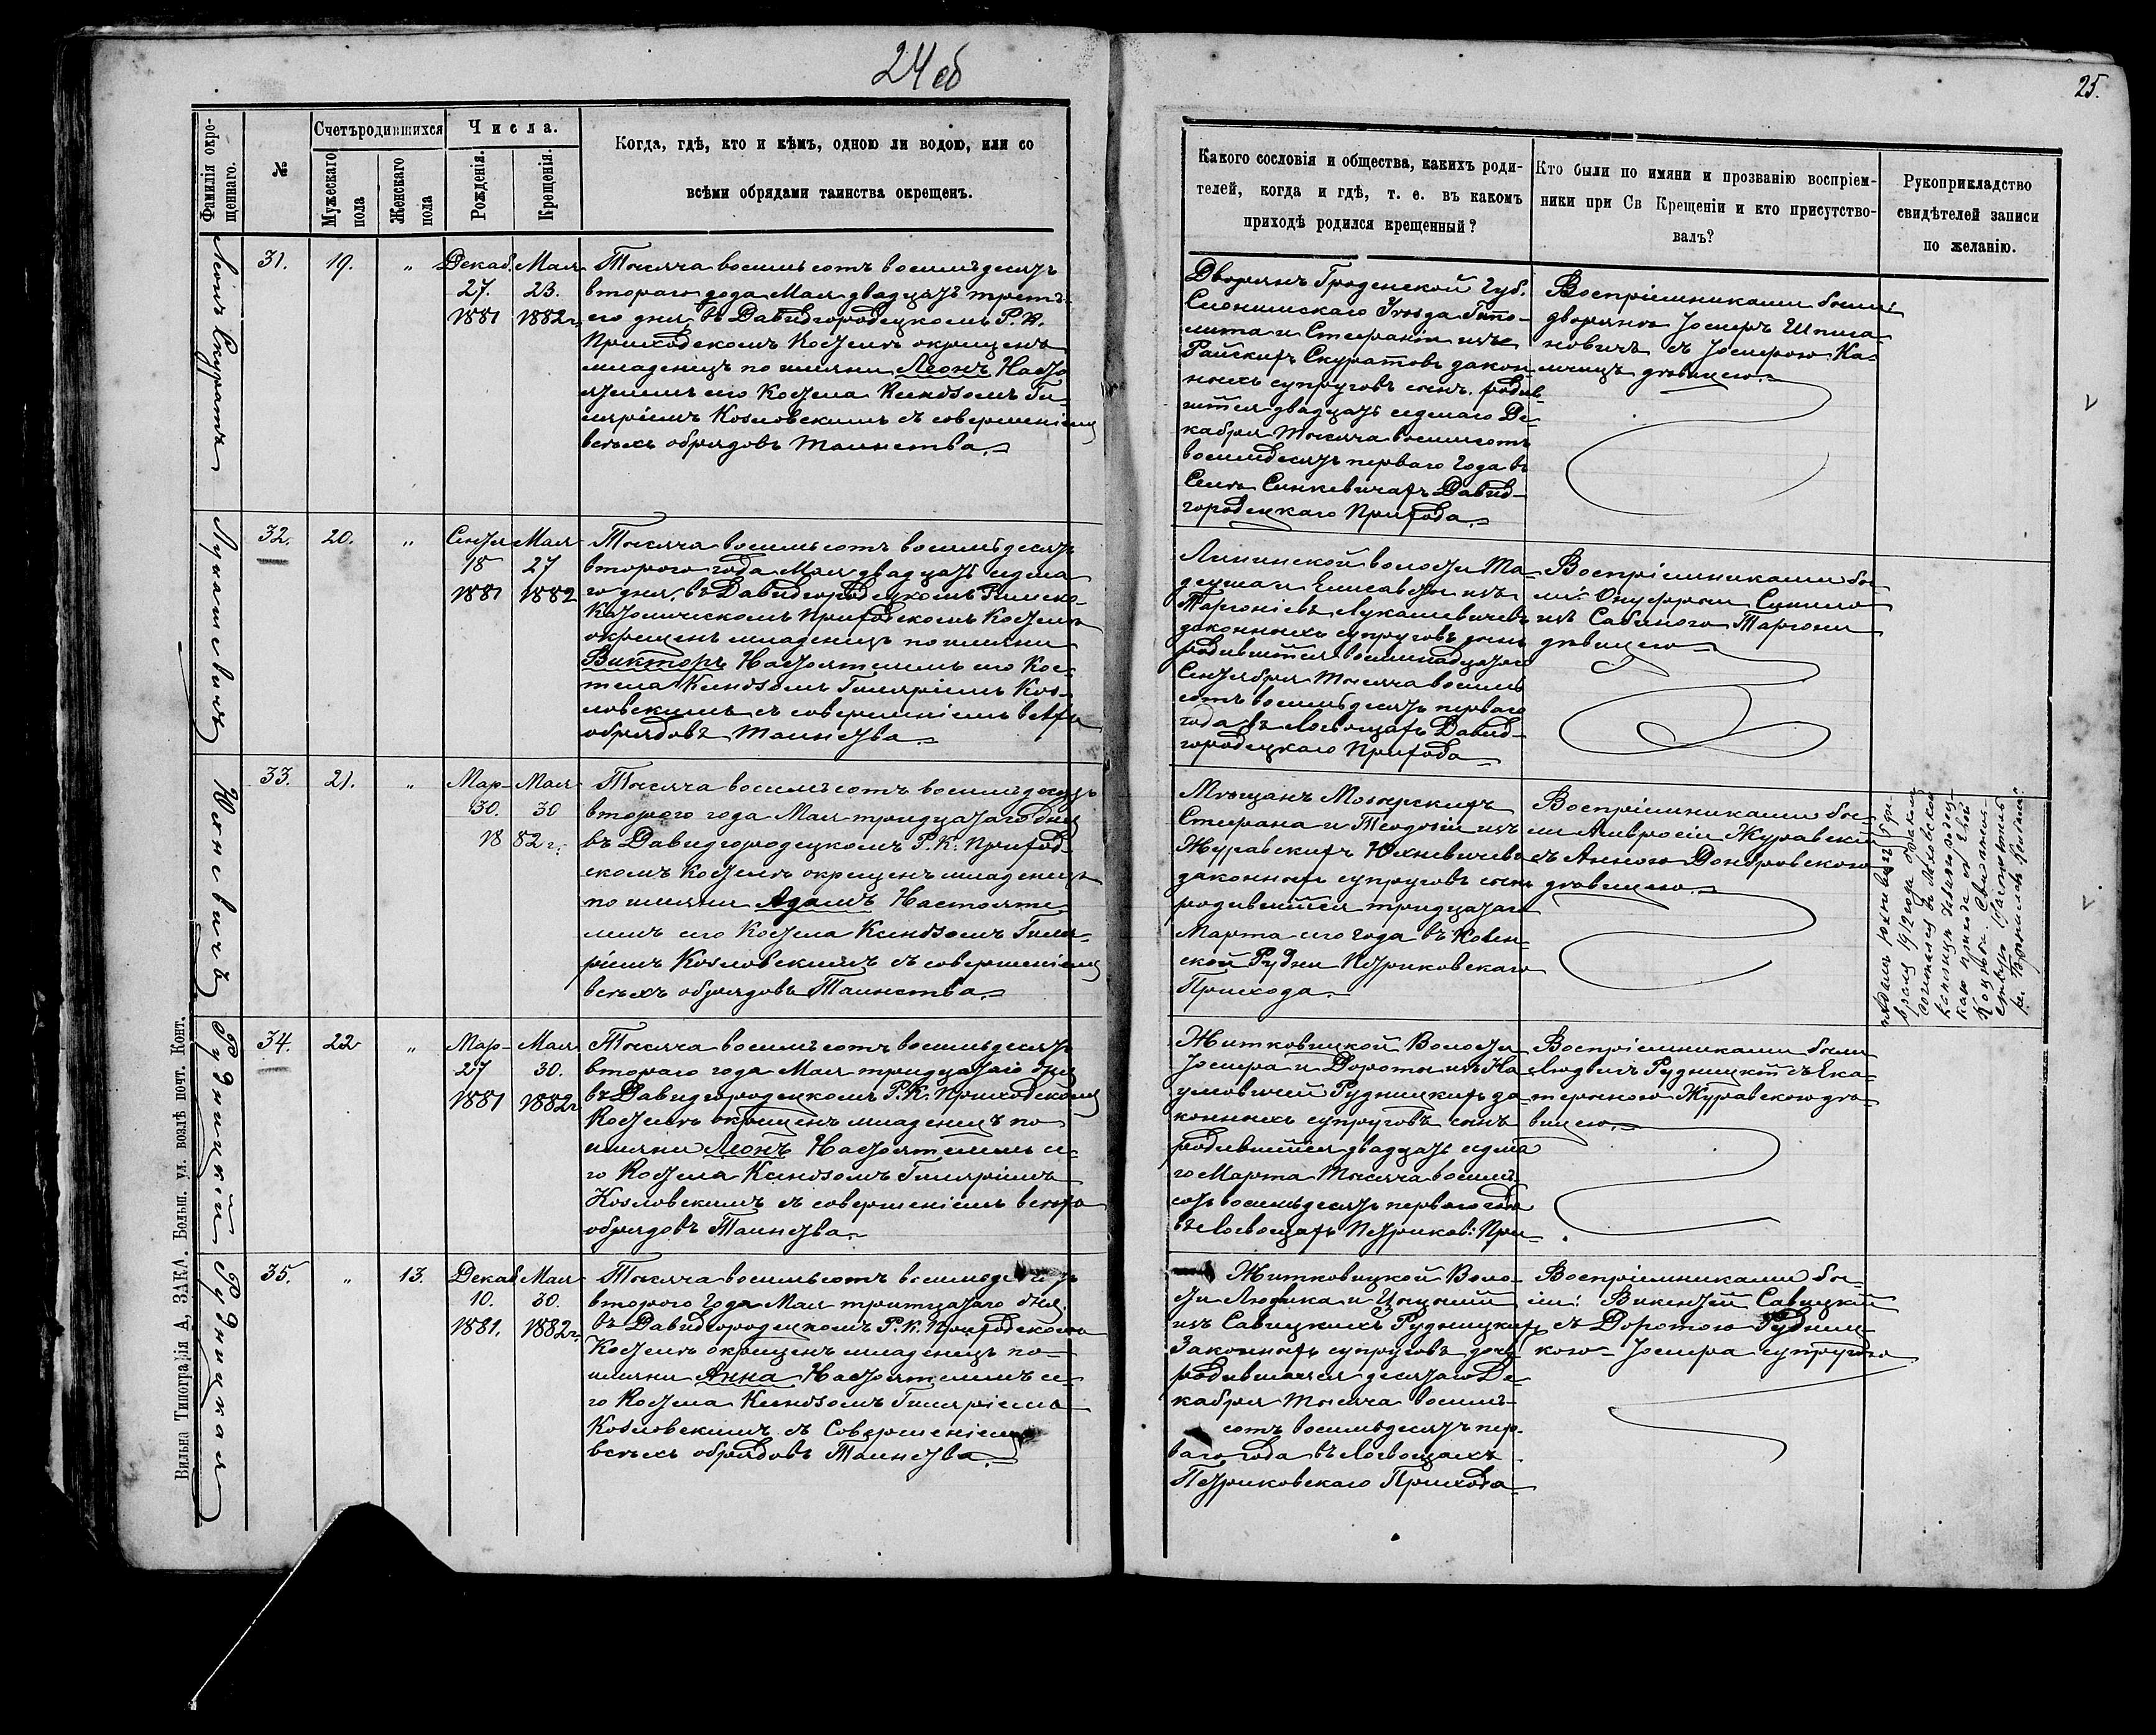 24 об
25.
Фамилія окре-
щеннаго.
№
Счетъ родившихся
Мужескаго
пола
Женскаго
пола
Числа.
Рожденія.
Крещенія.
Когда, гдѣ, кто и кѣмъ, одною ли водою, или со
всѣми обрядами таинства окрещенъ.
Какого сословія и общества, какихъ роди-
телей, когда и гдѣ, т. е. въ какомъ
приходѣ родился крещенный?
Кто были по имяни и прозванію воспріем-
ники при Св Крещеніи и кто присутство-
валъ?
Рукоприкладство
свидѣтелей записи
по желанію.
Леонъ Скуратъ
31.
19.
„
Декаб. Мая
27. 23.
1881 1882 г.
Тысяча восемьсотъ восемьдесятъ
втораго года Мая двадцать треть-
его дня въ Давидгородецкомъ Р. К.
Приходскомъ Костелѣ окрещенъ
младенецъ по имяни Леонъ Насто
ятелемъ его Костела Ксендзомъ Ги-
ляріемъ Козловскимъ съ совершеніемъ
всѣхъ обрядовъ Таинства.
Дворянъ Гроденской Губ.
Слонимскаго Уѣзда Гипо-
лита и Стефаніи изъ
Райскихъ Скуратовъ закон-
ныхъ супруговъ сынъ, родив-
шійся двадцать седьмаго Де-
кабря Тысяча восемьсотъ
восемдесятъ перваго Года въ
Селѣ Синкевичахъ Давид-
городецкаго Прихода.
Воспріемниками были:
дворянъ Іосифъ Шпила-
новичъ съ Іосифою Ка-
дѣвицею.
Лукашевичъ
32.
20.
„
Сентя Мая
18 27
1881 1882
Тысяча восемьсотъ восемьдесятъ
втораго года Мая двадцать седма
го дня, въ Давидгородецкомъ Римско-
Католическомъ Приходскомъ Костелѣ
окрещенъ младенецъ по имяни
Викторъ Настоятелемъ его Кос-
тела Ксендзомъ Гиляріемъ Коз-
ловскимъ съ совершеніемъ всѣхъ
обрядовъ Таинства.
Ленинской волости Та-
деуша и Елисаветы изъ
Таргоніевъ Лукашевичевъ
законныхъ супруговъ сынъ
родившійся восемнадцатаго
Сентября Тысяча восемь
сотъ восемьдесятъ перваго
года въ Лосвощахъ Давид-
городецкаго Прихода
Воспріемниками бы-
ли: Онуфрый
съ Сабиною Таргони
дѣвицею
Юхневичъ
33.
21.
„
Мар- Мая
30. 30
18 82 г.
Тысяча восемьсотъ восемьдесятъ
втораго года Мая тридцатаго дня
въ Давидгородецкомъ Р. К. Приход-
скомъ Костелѣ окрещенъ младенецъ
по имяни Адамъ Настояте
лемъ его Костела Ксендзомъ Гиля-
ріемъ Козловскимъ съ совершеніемъ
всѣхъ обрядовъ Таинства.
Мѣщанъ Мозырскихъ
Стефана и Теодозіи изъ
Журавскихъ Юхневичевъ
законныхъ супруговъ сынъ
родившійся тридцатаго
Марта его года въ
ской Рудни Петриковскаго
Прихода.
Воспріемниками бы-
ли Амвросій Журавскій
съ Анною Домбровскою
дѣвицею.
Адамъ Юхневичъ
1912 года бракомъ
сочетался въ Ляховской
прихода съ Евой
Рудницкій
34.
22
„
Мар- Мая
27 30.
1881 1882 г
Тысяча восемьсотъ восемьдесятъ
втораго года Мая тридцатаго дня
въ Давидгородецкомъ Р. К. Приходскомъ
Костелѣ окрещенъ младенецъ по
имяни Леонъ Настоятелемъ се-
го Костела Ксендзомъ Гиляріемъ
Козловскимъ съ совершеніемъ всѣхъ
обрядовъ Таинства.
Житковицкой Волости
Іосифа и Дороты изъ На
умовичей Рудницкихъ за-
конныхъ супруговъ сынъ
родившійся двадцать седма
го Марта Тысяча восемь-
сотъ восемьдесятъ перваго года
въ Лосвощахъ Петриков: При-
Воспріемниками были
Людвикъ Рудницкій съ Ека-
териною Журавскою дѣ-
вицею.
Рудницкая
35.
„
13.
Декаб Мая
10. 30.
1881. 1882 г.
Тысяча восемьсотъ восемьдесятъ
втораго Года Мая тритцатаго дня.
въ Давидгородецкомъ Р. К. Приходскомъ
Костелѣ окрещенъ младенецъ по
имяни Анна Настоятелемъ се-
го Костела Ксендзомъ Гиляріемъ
Козловскимъ съ Совершеніемъ
всѣхъ обрядовъ Таинства.
Житковицкой Воло-
сти Людвика и
изъ Савицкихъ Рудницкихъ
Законныхъ супруговъ дочь
родившаяся десятаго Де-
кабря Тысяча восемь-
сотъ восемьдесятъ пер-
ваго года въ Лосвощахъ
Петриковскаго Прихода
Воспріемниками бы-
ли: Викентій Савицкій
съ Доротою Рудниц-
кою - Іосифа супругою
Вильна Типографія А. ЗАКА. Больш. ул. возлѣ почт. Конт.